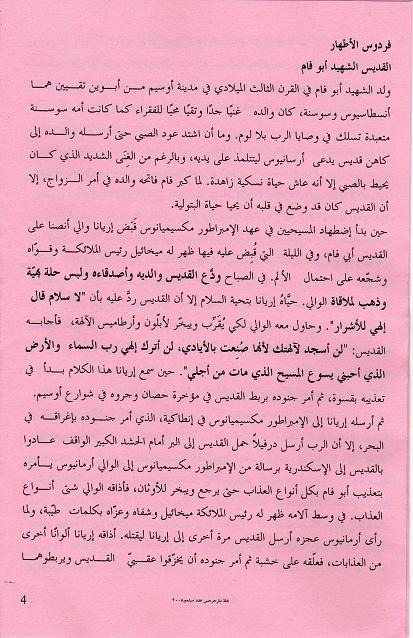 فردوس الأطهار
القديس الشهيد أبو فام
ولد الشهيد أبو فام في القرن الثالث الميلادي في مدينة أوسيم من أبوين تقيين هما
أنسطاسيوس وسوسنة، كان والده غنيًا جدًا وتقيًا محبًا للفقراء كما كانت أمه سوسنة
متعبدة تسلك في وصايا الرب بلا لوم. وما ان اشتد عود الصبي حتى أرسله والده إلى
كاهن قديس يدعى أرسانيوس ليتتلمذ على يديه، وبالرغم من الغنى الشديد الذي كان
يحيط بالصبي إلا أنه عاش حياة نسكية زاهدة. لما كبر فام فاتحه والده في أمر الزواج، إلا
أن القديس كان قد وضع في قلبه أن يحيا حياة البتولية.
حين بدأ إضطهاد المسيحيين في عهد الإمبراطور مكسيميانوس قَبَض إريانا والي أنصنا على
القديس أبي فام، وفي الليلة التي قُبض عليه فيها ظهر له ميخائيل رئيس الملائكة وقوّاه
وشجّعه على احتمال الألم. في الصباح ودَّع القديس والديه وأصدقاءه ولبس حلة بهيّة
وذهب لملاقاة الوالي. حيَّاهُ إريانا بتحية السلام إلا أن القديس ردَّ عليه بأن "لا سلام قال
إلهي للأشرار". وحاول معه الوالي لكي يُقَرِّب ويبخّر لأبلّون وأرطاميس الآلهة، فأجابه
القديس: "لن أسجد لآلهتك لأنها صُنعت بالأيادي، لن أترك إلهي رب السماء والأرض
الذي أحبني يسوع المسيح الذي مات من أجلي". حين سمع إريانا هذا الكلام بدأ في
تعذيبه بقسوة، ثم أمر جنوده بربط القديس في مؤخرة حصان وجروه في شوارع أوسيم.
ثم أرسله إريانا إلى الإمبراطور مكسيميانوس في إنطاكية، الذي أمر جنوده بإغراقه في
البحر، إلا أن الرب أرسل درفيلاً حمل القديس إلى البر أمام الحشد الكبير الواقف عادوا
بالقديس إلى الإسكندرية برسالة من الإمبراطور مكسيميانوس إلى الوالي أرمانيوس يأمره
بتعذيب أبو فام بكل أنواع العذاب حتى يرجع ويبخر للأوثان، فأذاقه الوالي شتى أنواع
العذاب. في وسط آلامه ظهر له رئيس الملائكة ميخائيل وشفاه وعزّاه بكلمات طيّبة، ولما
رأى أرمانيوس عجزه أرسل القديس مرة أخرى إلى إريانا ليقتله. أذاقه إريانا ألوانًا أخرى
من العذابات، فعلّقه على خشبة ثم أمر جنوده أن يخزّقوا عقبيّ القديس ويربطوهما
4